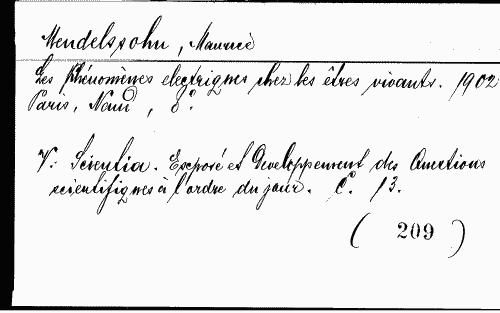 Mendelssohn, Maurice
Les phénomènes electriques chez les êtres vivants. 1902
Paris, Naud, 8°.
V: Scientia. Exposé et Developpement des Questions
scientifiques à l'ordre du jour. C. 13.
( 209 )